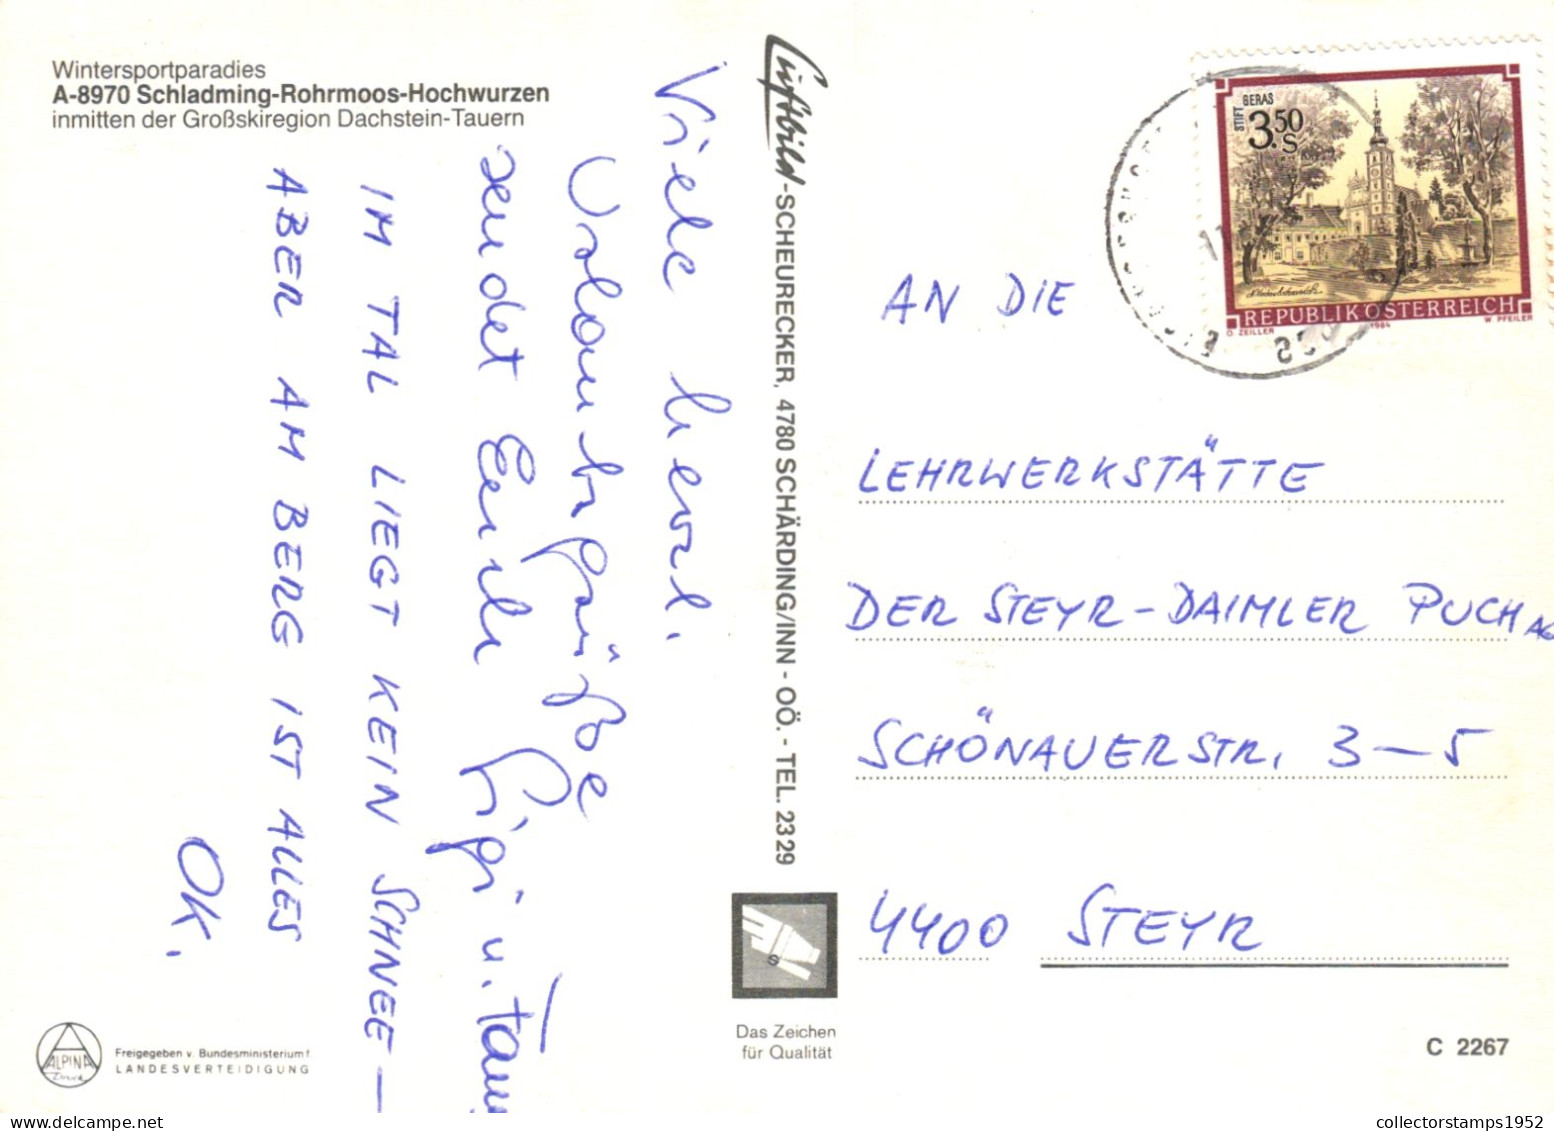 Wintersportparadies
A-8970 Schladming-Rohrmoos-Hochwurzen
inmitten der Großskiregion Dachstein-Tauern
Viele liebe
Urlaubsgrüße
sendet Euch Gigi u.
IM TAL LIEGT KEIN SCHNEE —
ABER AM BERG IST ALLES
OK.
ALPINA
Druck
Freigegeben v. Bundesministerium f.
LANDESVERTEIDIGUNG
Luftbild-SCHEURECKER, 4780 SCHÄRDING/INN - OÖ. - TEL. 2329
S
Das Zeichen
für Qualität
STIFT GERAS
3.50
S
REPUBLIK ÖSTERREICH
O. ZEILLER 1984 W. PFEILER
AN DIE
LEHRWERKSTÄTTE
DER STEYR-DAIMLER PUCH AG
SCHÖNAUERSTR. 3-5
4400 STEYR
C 2267
collectorstamps1952